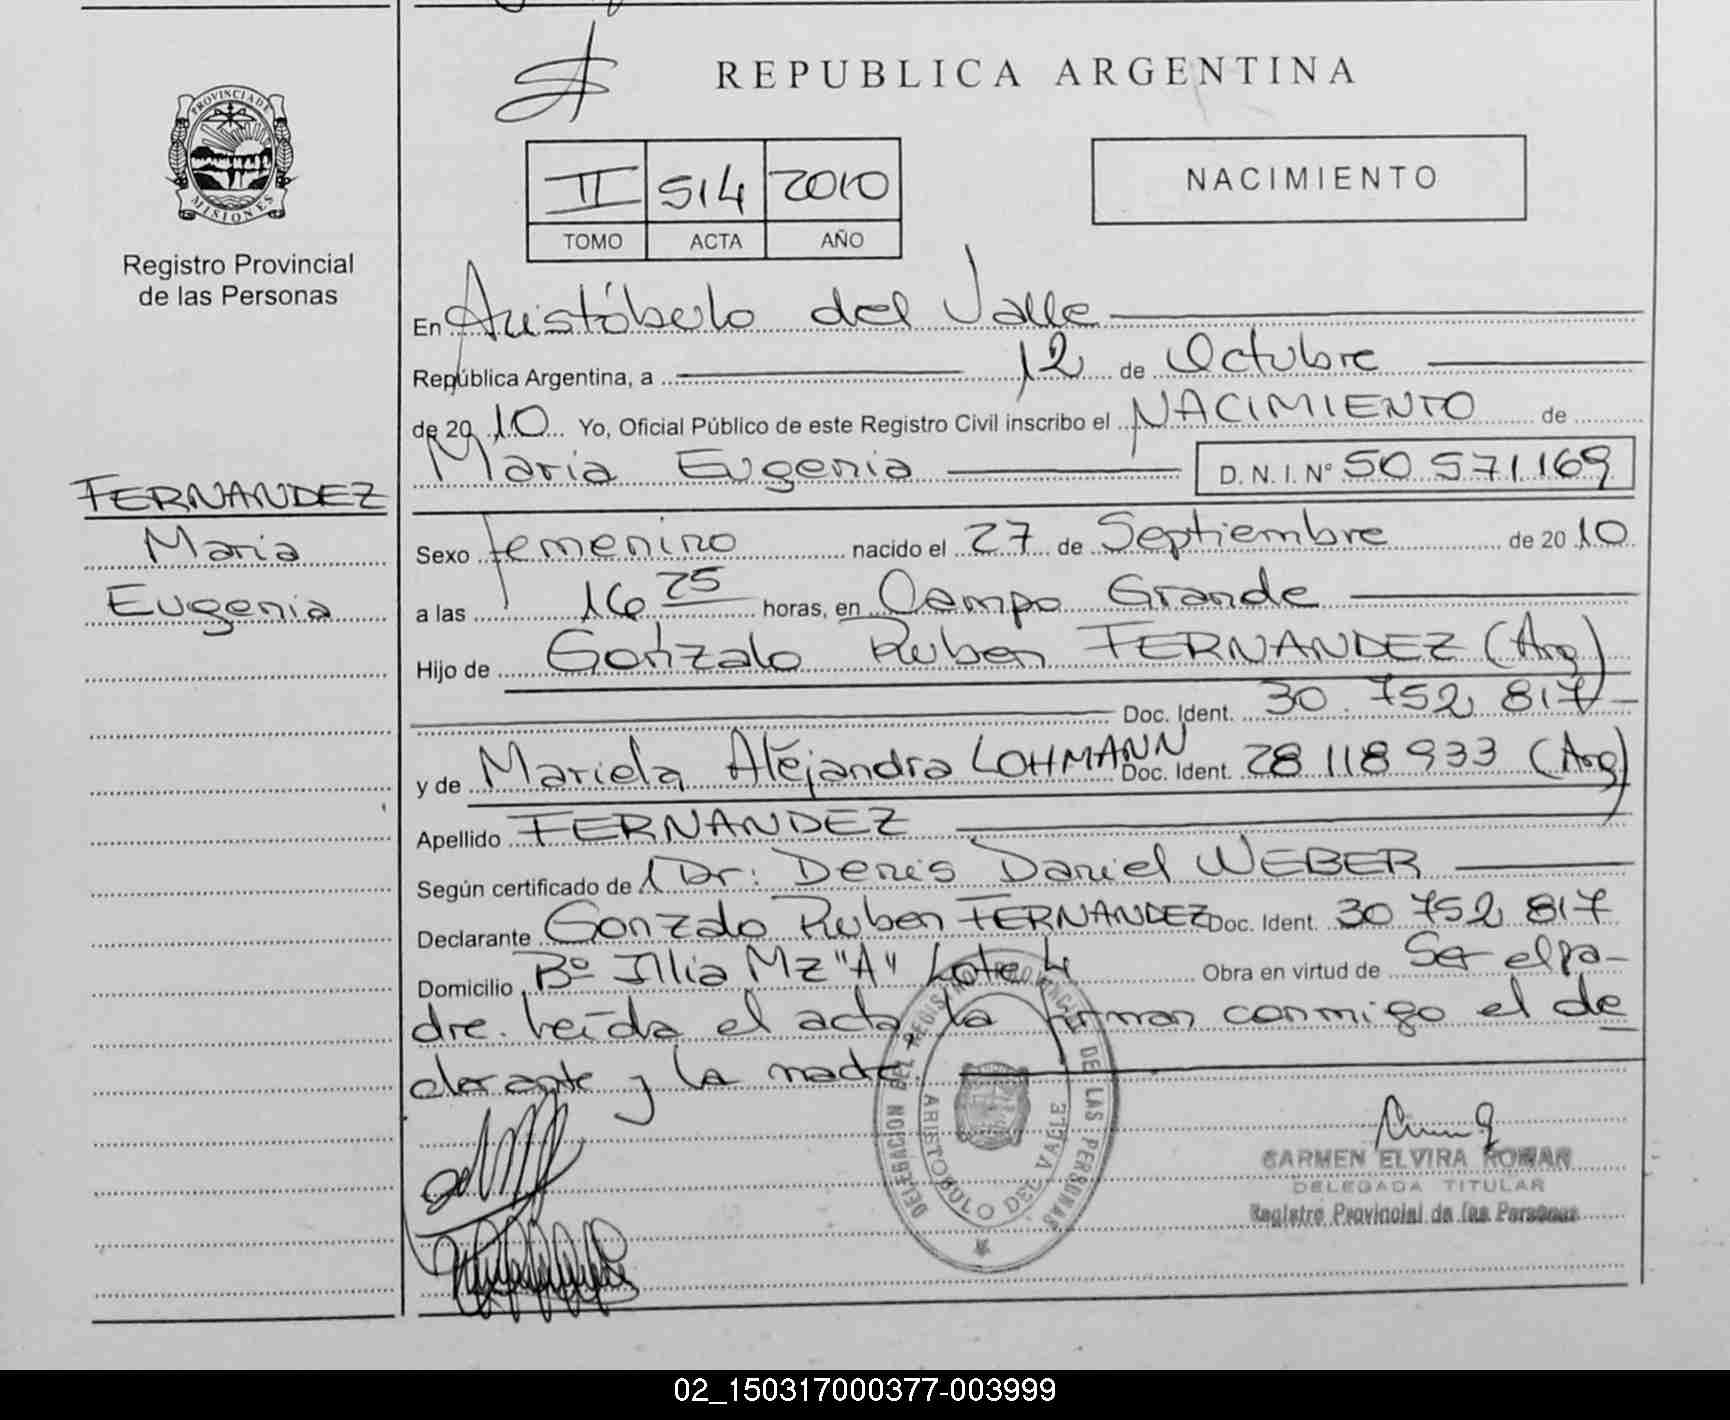 REPUBLICA ARGENTINA
PROVINCIA DE MISIONES
Registro Provincial
de las Personas
II 514 2010
TOMO ACTA AÑO
NACIMIENTO
En Aristóbulo del Valle
República Argentina, a 12 de Octubre
de 2010 Yo, Oficial Público de este Registro Civil inscribo el NACIMIENTO de
Maria Eugenia D.N.I.Nº 50.571.169
FERNANDEZ
Maria
Eugenia
Sexo femenino nacido el 27 de Septiembre de 2010
a las 16 25 horas, en Campo Grande
Hijo de Gonzalo Ruben FERNANDEZ (Arg)
Doc. Ident. 30.752.817
y de Mariela Alejandra LOHMANN Doc. Ident. 28 118 933 (Arg)
Apellido FERNANDEZ
Según certificado de Dr: Denis Daniel WEBER
Declarante Gonzalo Ruben FERNANDEZ Doc. Ident. 30 752 817
Domicilio Bº Illia Mz "A" Lote 4 Obra en virtud de Ser el pa-
dre. leída el acta, la firman conmigo el de
clarante y la madre.
DELEGACION DEL REGISTRO PROVINCIAL DE LAS PERSONAS
ARISTOBULO DEL VALLE
CARMEN ELVIRA ROMAN
DELEGADA TITULAR
Registro Provincial de las Personas
02_150317000377-003999